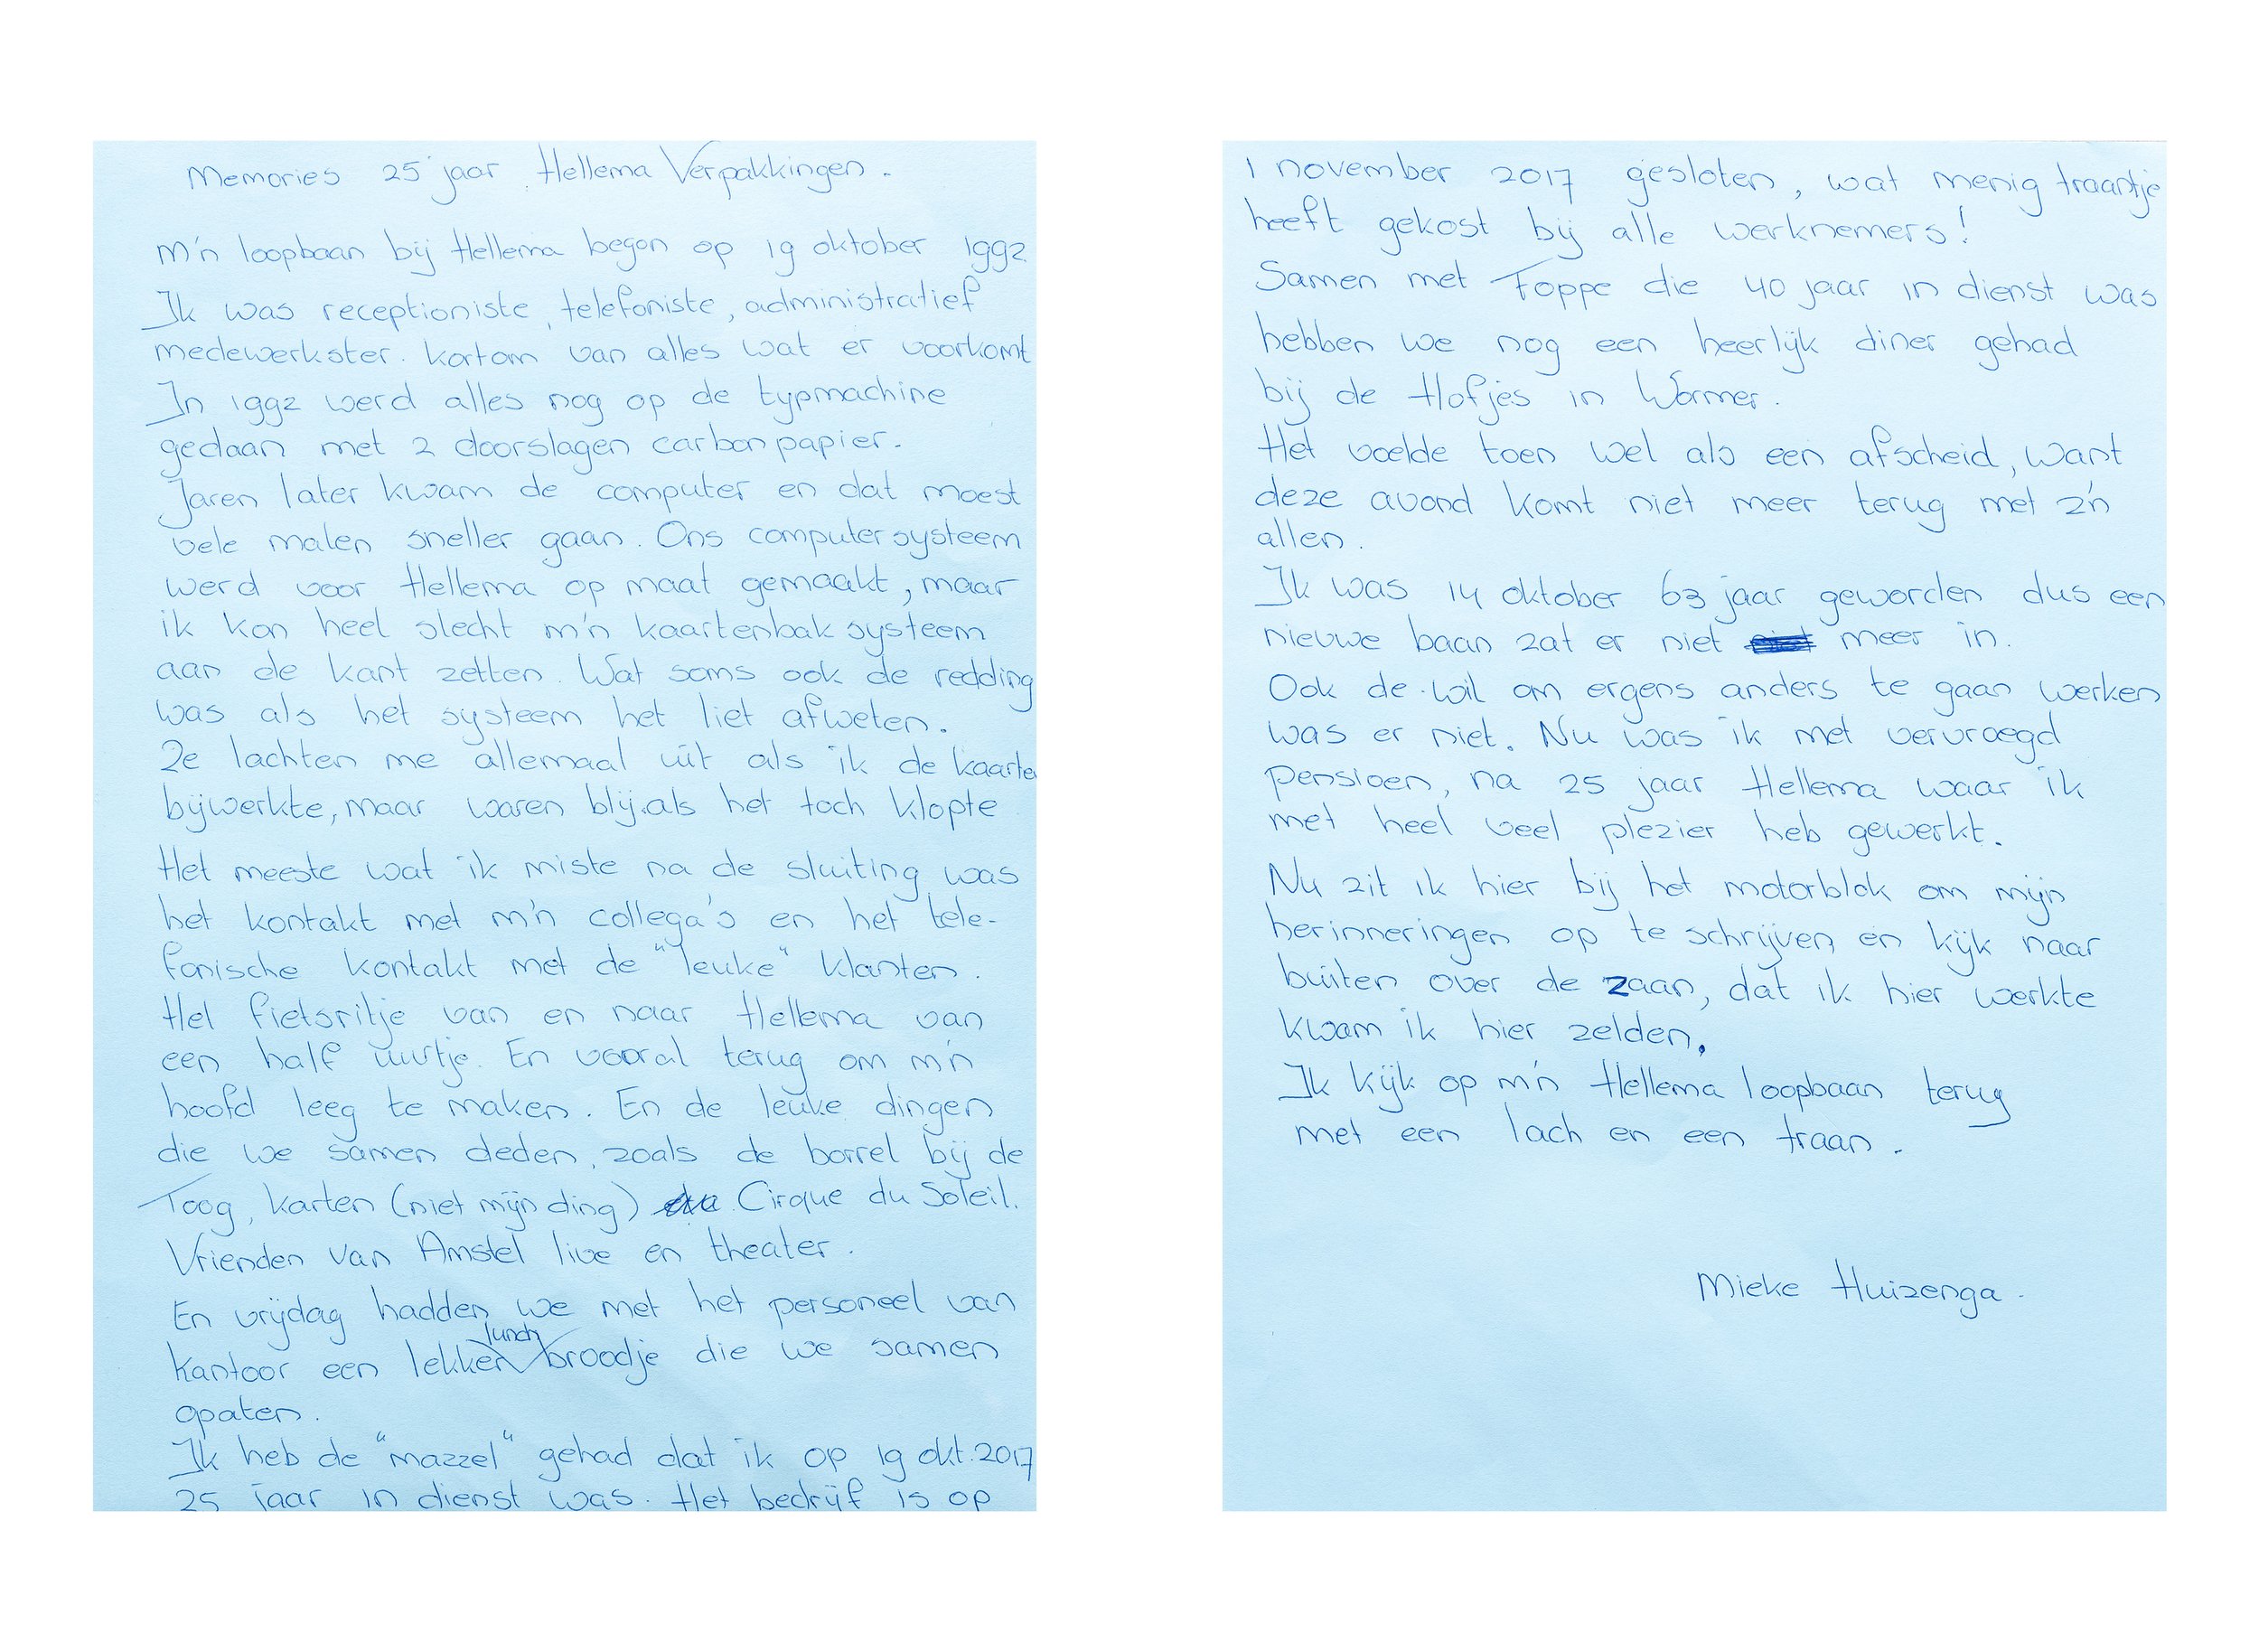 Memories 25 jaar Hellema Verpakkingen.
M'n loopbaan bij Hellema begon op 19 oktober 1992
Ik was receptioniste, telefoniste, administratief
medewerkster. Kortom van alles wat er voorkomt
In 1992 werd alles nog op de typmachine
gedaan met 2 doorslagen carbonpapier.
Jaren later kwam de computer en dat moest
vele malen sneller gaan. Ons computersysteem
werd voor Hellema op maat gemaakt, maar
ik kon heel slecht m'n kaartenbak systeem
aan de kant zetten. Wat soms ook de redding
was als het systeem het liet afweten.
Ze lachten me allemaal uit als ik de kaarte
bijwerkte, maar waren blij als het toch klopte
Het meeste wat ik miste na de sluiting was
het kontakt met m'n collega's en het tele-
fonische kontakt met de "leuke" klanten.
Het fietsritje van en naar Hellema van
een half uurtje. En vooral terug om m'n
hoofd leeg te maken. En de leuke dingen
die we samen deden, zoals de borrel bij de
Toog, karten (niet mijn ding) Cirque du Soleil.
Vrienden van Amstel live en theater.
En vrijdag hadden we met het personeel van
kantoor een lekker lunch broodje die we samen
opaten.
Ik heb de "mazzel" gehad dat ik op 19 okt. 2017
25 jaar in dienst was. Het bedrijf is op
1 november 2017 gesloten, wat menig traantje
heeft gekost bij alle werknemers!
Samen met Foppe die 40 jaar in dienst was
hebben we nog een heerlijk diner gehad
bij de Hofjes in Wormer.
Het voelde toen wel als een afscheid, want
deze avond komt niet meer terug met z'n
allen.
Ik was 14 oktober 63 jaar geworden dus een
nieuwe baan zat er niet meer in.
Ook de wil om ergens anders te gaan werken
was er niet. Nu was ik met vervroegd
pensioen, na 25 jaar Hellema waar ik
met heel veel plezier heb gewerkt.
Nu zit ik hier bij het motorblok om mijn
herinneringen op te schrijven en kijk naar
buiten over de Zaan, dat ik hier werkte
kwam ik hier zelden.
Ik kijk op m'n Hellema loopbaan terug
met een lach en een traan.
Mieke Huizenga.